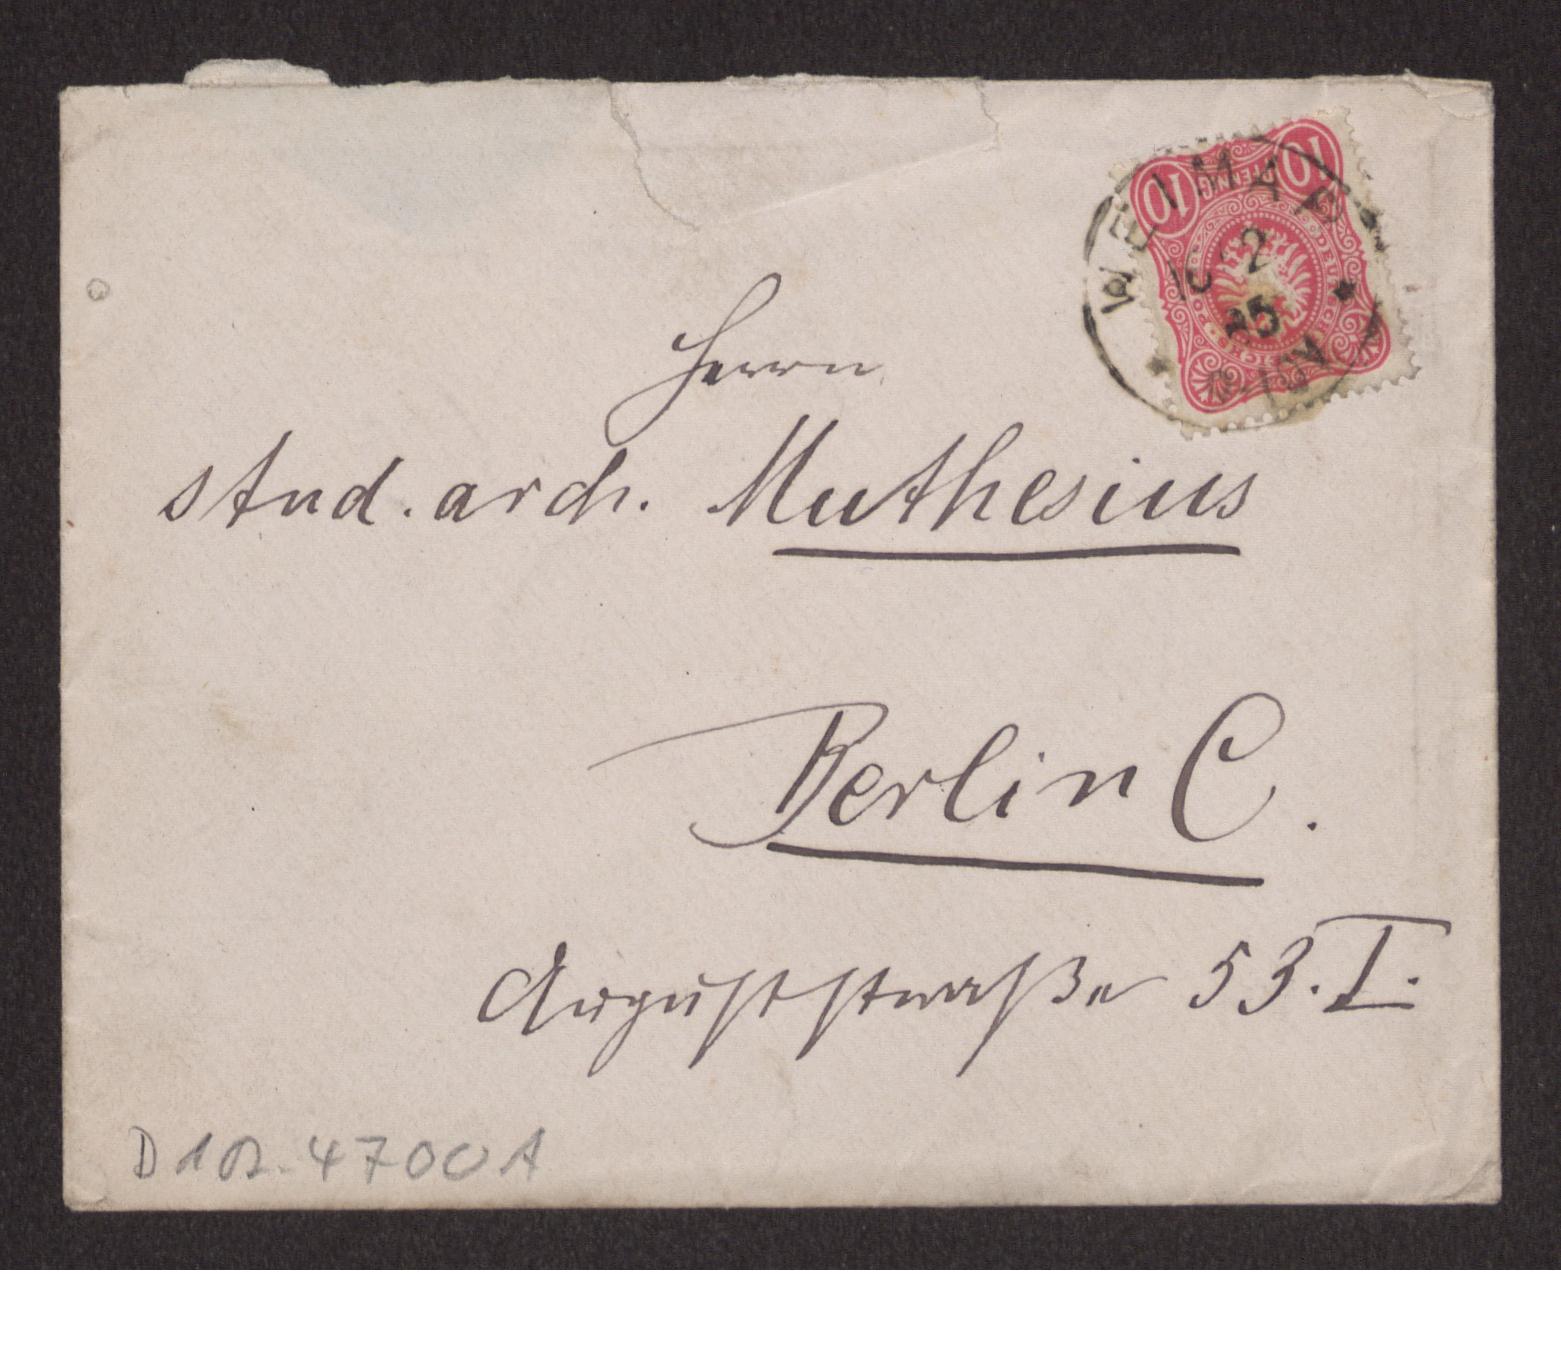 WEIMAR
10 PFENNIG 10
DEUTSCHE REICHS-POST
Herrn
stud. arch. Muthesius
Berlin C.
Auguststraße 53. I.
4700A